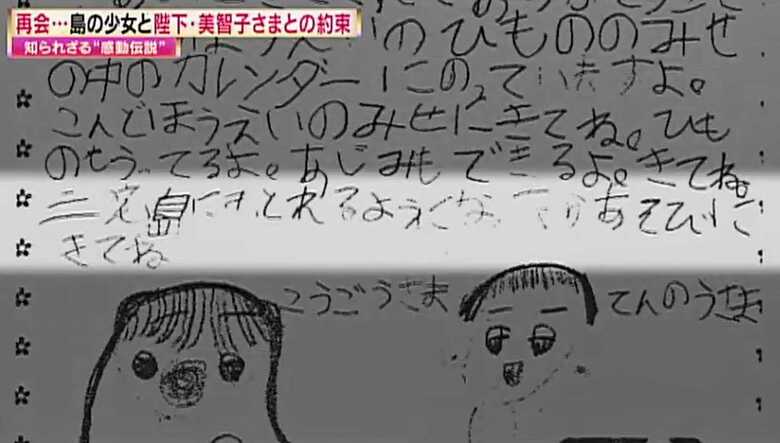 再会…島の少女と陛下・美智子さまとの約束
知られざる“感動伝説”
のひもののみせ
の中のカレンダーにのっていますよ。
こんどほうえいのみせにきてね。ひも
のもうってるよ。あじみもできるよ。きてね。
三宅島にもどれるようになったらあそびに
きてね
こうごうさま
てんのうさま